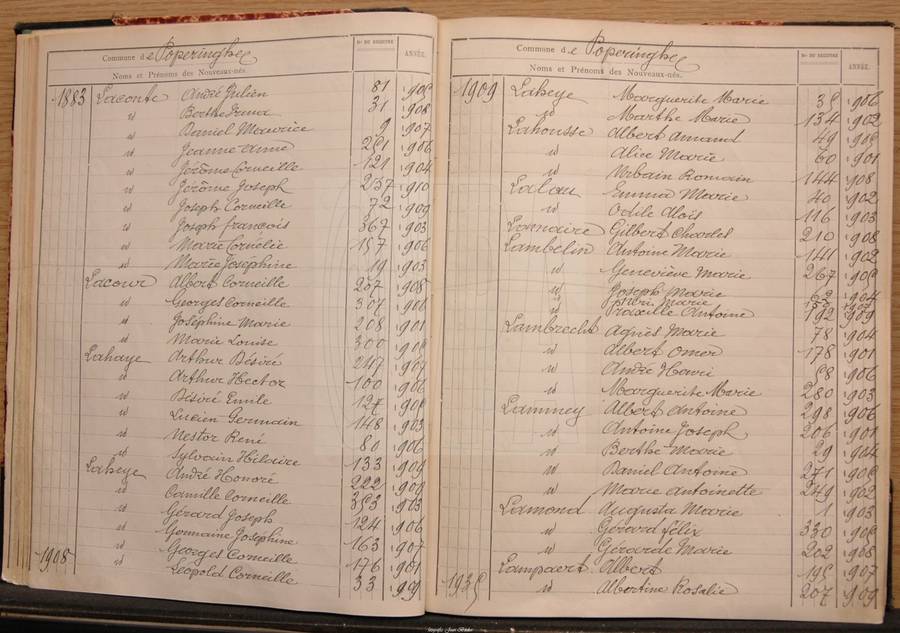 Commune de Poperinghe
N° DU REGISTRE
ANNÉE.
Noms et Prénoms des Nouveaux-nés.
1883 Laconte André Julien 81 1905
id Berthe Irma 31 1908
id Daniel Maurice 9 1907
id Jeanne Anne 251 1906
id Jérôme Corneille 121 1904
id Jérôme Joseph 237 1910
id Joseph Corneille 72 1909
id Joseph François 367 1903
id Marie Cornélie 157 1906
id Marie Joséphine 19 1903
Lacour Albert Corneille 237 1908
id Georges Corneille 307 1901
id Joséphine Marie 208 1901
id Marie Louise 300
Lahaye Arthur Désiré 247 1907
id Arthur Hector 100 1906
id Désiré Emile 127
id Lucien Germain 148 1903
id Nestor René 80 1906
id Sylvain Hilaire 133
Laheye André Honoré 222
id Camille Corneille 353 1903
id Gérard Joseph 124 1906
id Germaine Joséphine 163 1907
id Georges Corneille 176 1901
1908 id Leopold Corneille 33 1909
Commune de Poperinghe
N° DU REGISTRE
ANNÉE.
Noms et Prénoms des Nouveaux-nés.
1909 Laheye Marguerite Marie 35 1906
id Marthe Marie 134 1902
Lahousse Albert Amand 49 1905
id Alice Marie 60 1901
id Urbain Romain 144 1908
Lalau Emma Marie 40 1902
id Odile Alois 116 1903
Lamaire Gilbert Charles 210 1908
Lambelin Antoine Marie 141 1902
id Geneviève Marie 267 1905
id Joseph Marie 62 1904
id Joseph Marie
id Antoine 192 1909
Lambrecht Agnès Marie 78 1904
id Albert Omer 178 1901
id André Henri 58 1906
id Marguerite Marie 280 1903
Lammey Albert Antoine 298 1906
id Antoine Joseph 206 1901
id Berthe Marie 29 1904
id Daniel Antoine 271 1905
id Marie Antoinette 249 1902
Lamond Augusta Marie 1 1903
id Gérard Félix 330 1905
id Gérarde Marie 202 1908
Lampaert Albert 195 1907
1935 id Albertine Rosalie 207 1909